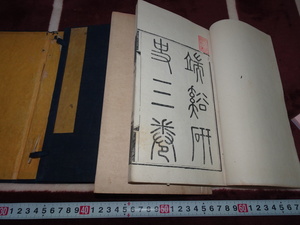 端谿研
史三卷
30 1 2 3 4 5 6 7 8 9 40 1 2 3 4 5 6 7 8 9 50 1 2 3 4 5 6 7 8 9 60 1 2 3 4 5 6